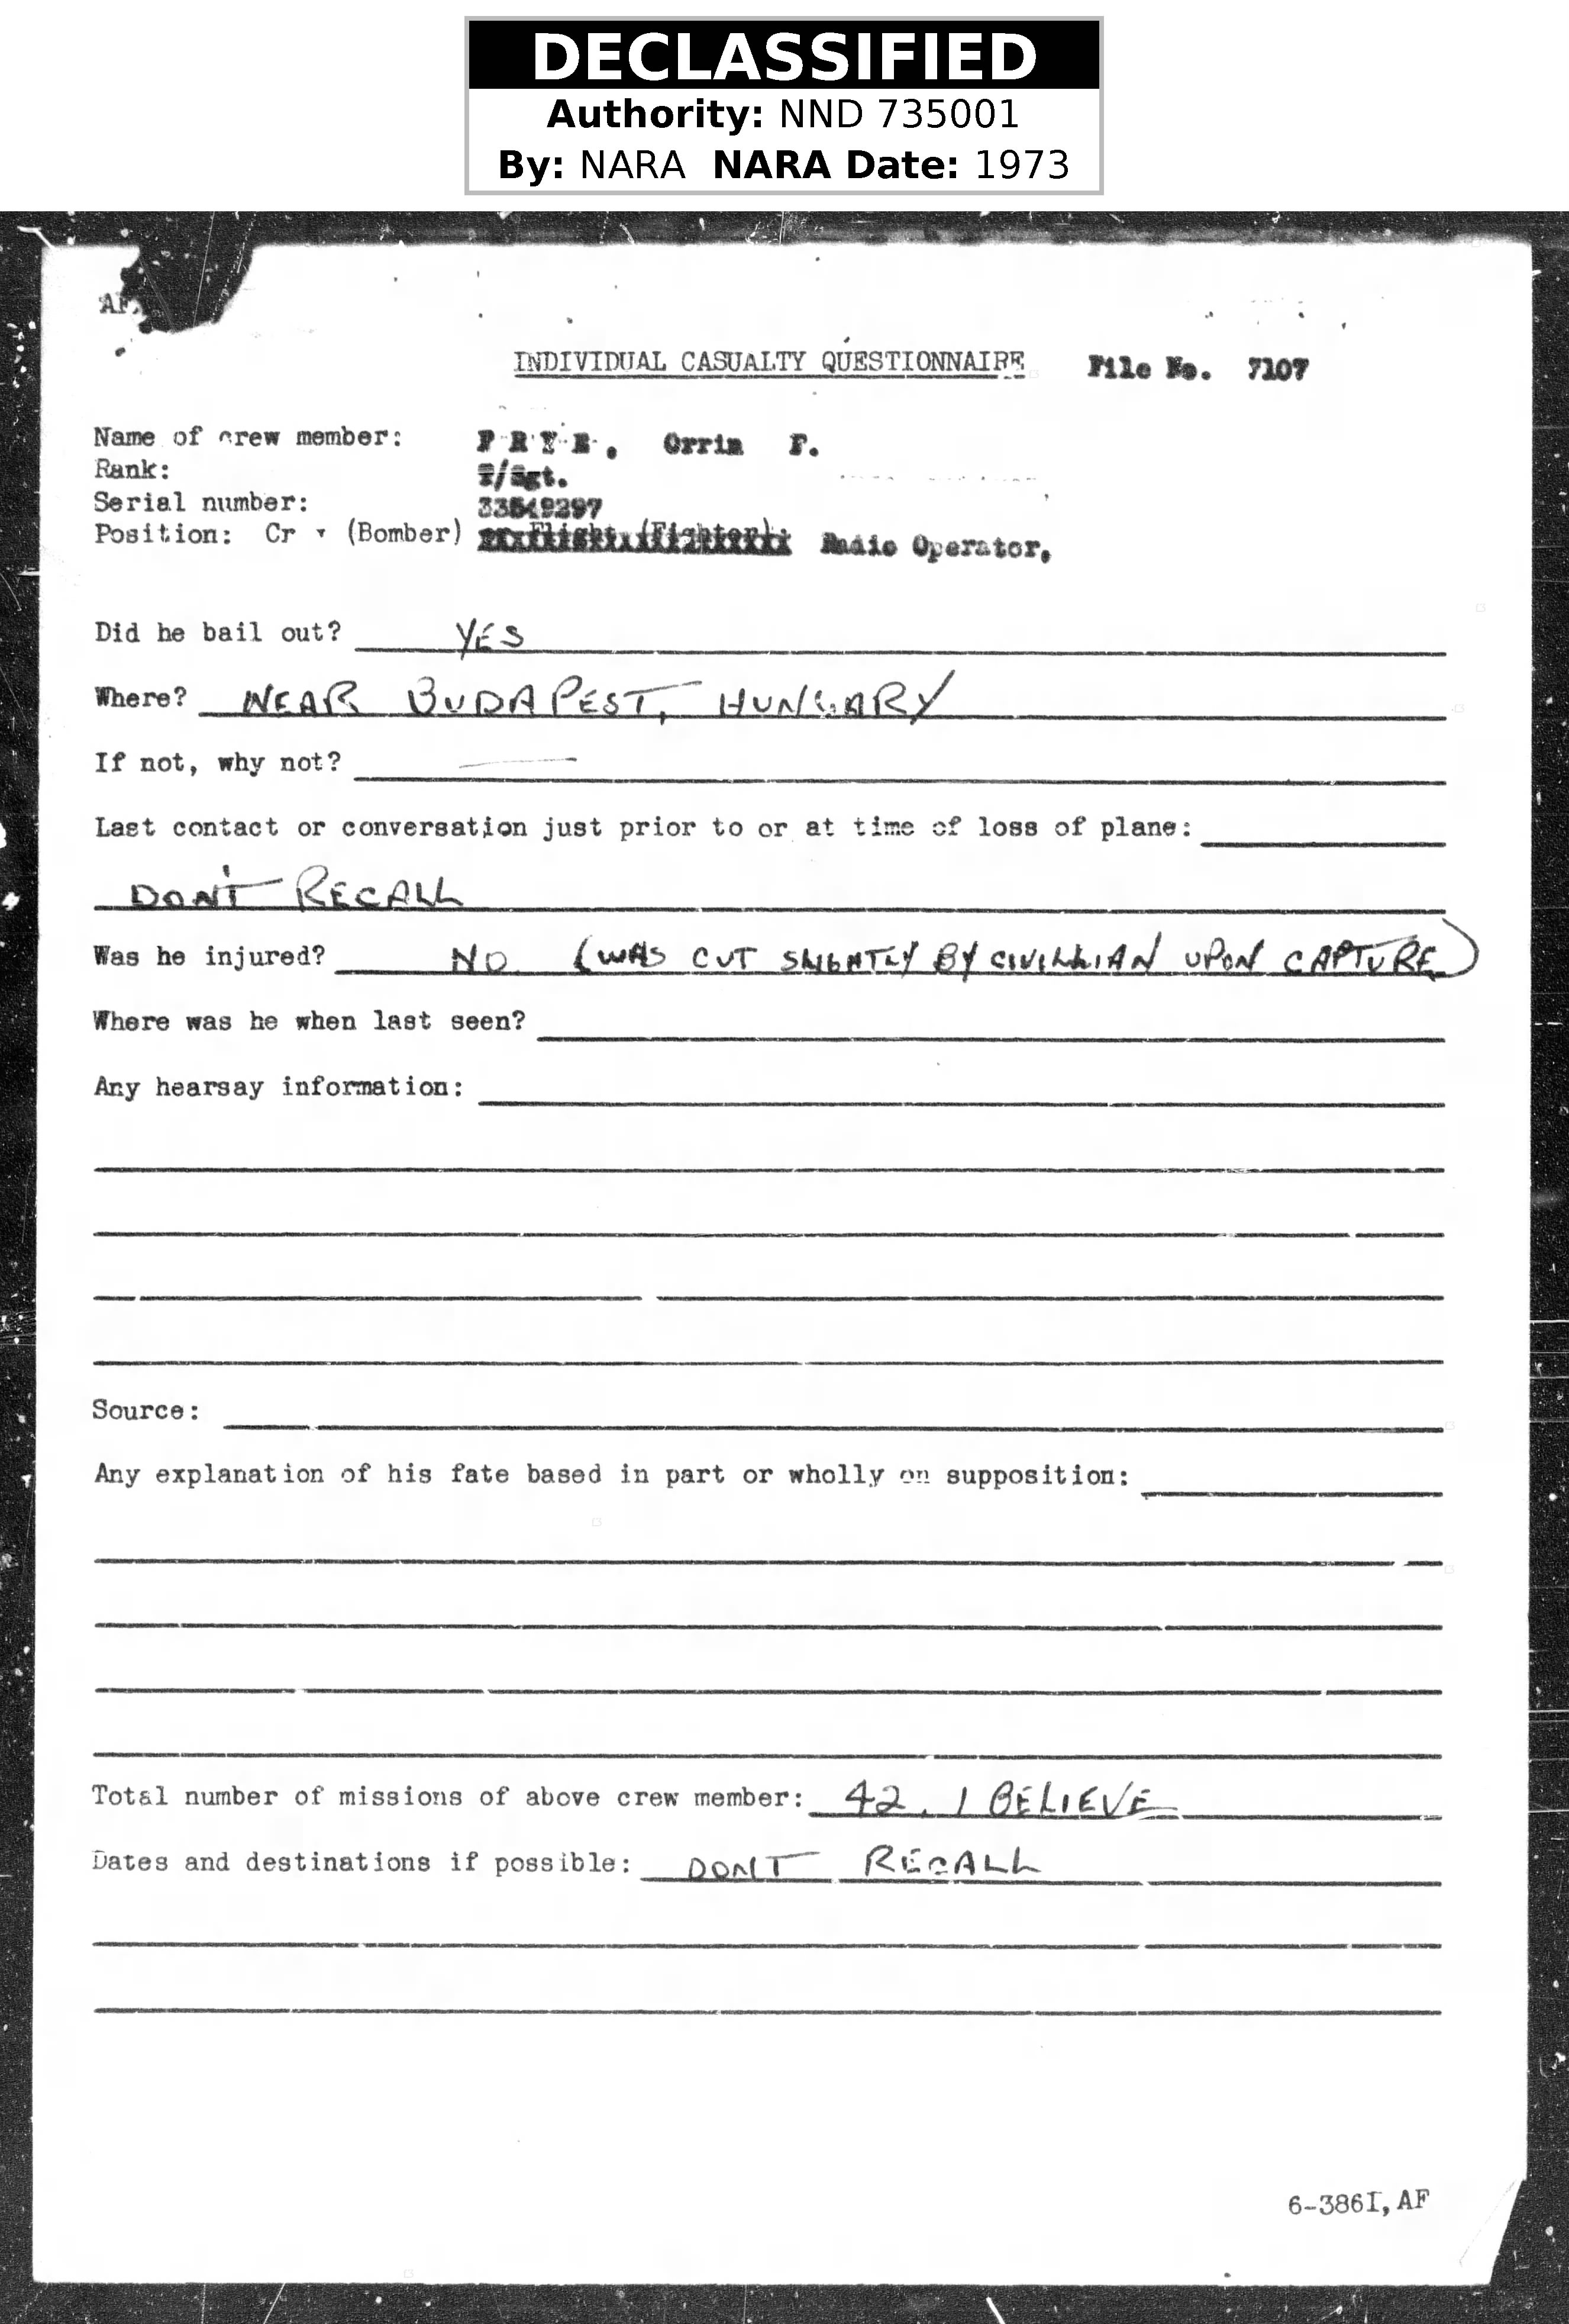 DECLASSIFIED
Authority: NND 735001
By: NARA NARA Date: 1973
AF
INDIVIDUAL CASUALTY QUESTIONNAIRE File No. 7107
Name of crew member: Orrin F.
Rank: T/Sgt.
Serial number: 33549297
Position: Cr (Bomber) Radio Operator,
Did he bail out? YES
Where? NEAR BUDAPEST, HUNGARY
If not, why not? —
Last contact or conversation just prior to or at time of loss of plane:
DON'T RECALL
Was he injured? NO (WAS CUT SLIGHTLY BY CIVILLIAN UPON CAPTURE)
Where was he when last seen?
Any hearsay information:
Source:
Any explanation of his fate based in part or wholly on supposition:
Total number of missions of above crew member: 42, I BELIEVE
Dates and destinations if possible: DONT RECALL
6-3861, AF